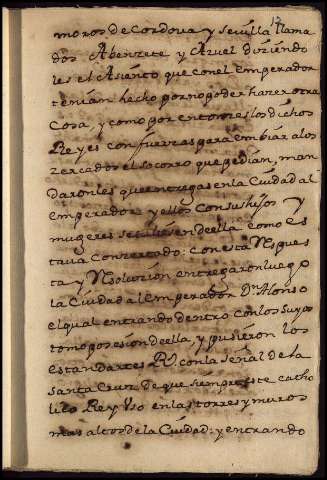 17
moros de cordova y sevilla llama
dos Abenzete y Azuel diziendo
les el Asiento que con el emperador
tenian hecho por no poder hazer otra
cosa, y como por entonces los dichos
Reyes con fuerzas para embiar a los
zercados el socorro que pedian, man
daronles que entregasen la Ciudad al
emperador y ellos con sus hijos y
mugeres se saliesen de ella como es
tava consertado: con esta Respues
ta y Resolucion entregaron luego
la Ciudad al Emperador Dn Alonso
el qual entrando dentro con los suyos
tomo posesion de ella, y pusieron los
estandartes Rs. con la señal de la
santa Cruz de que siempre este catho
lico Rey uso en las torres y muros
mas altos de la Ciudad: y entrando